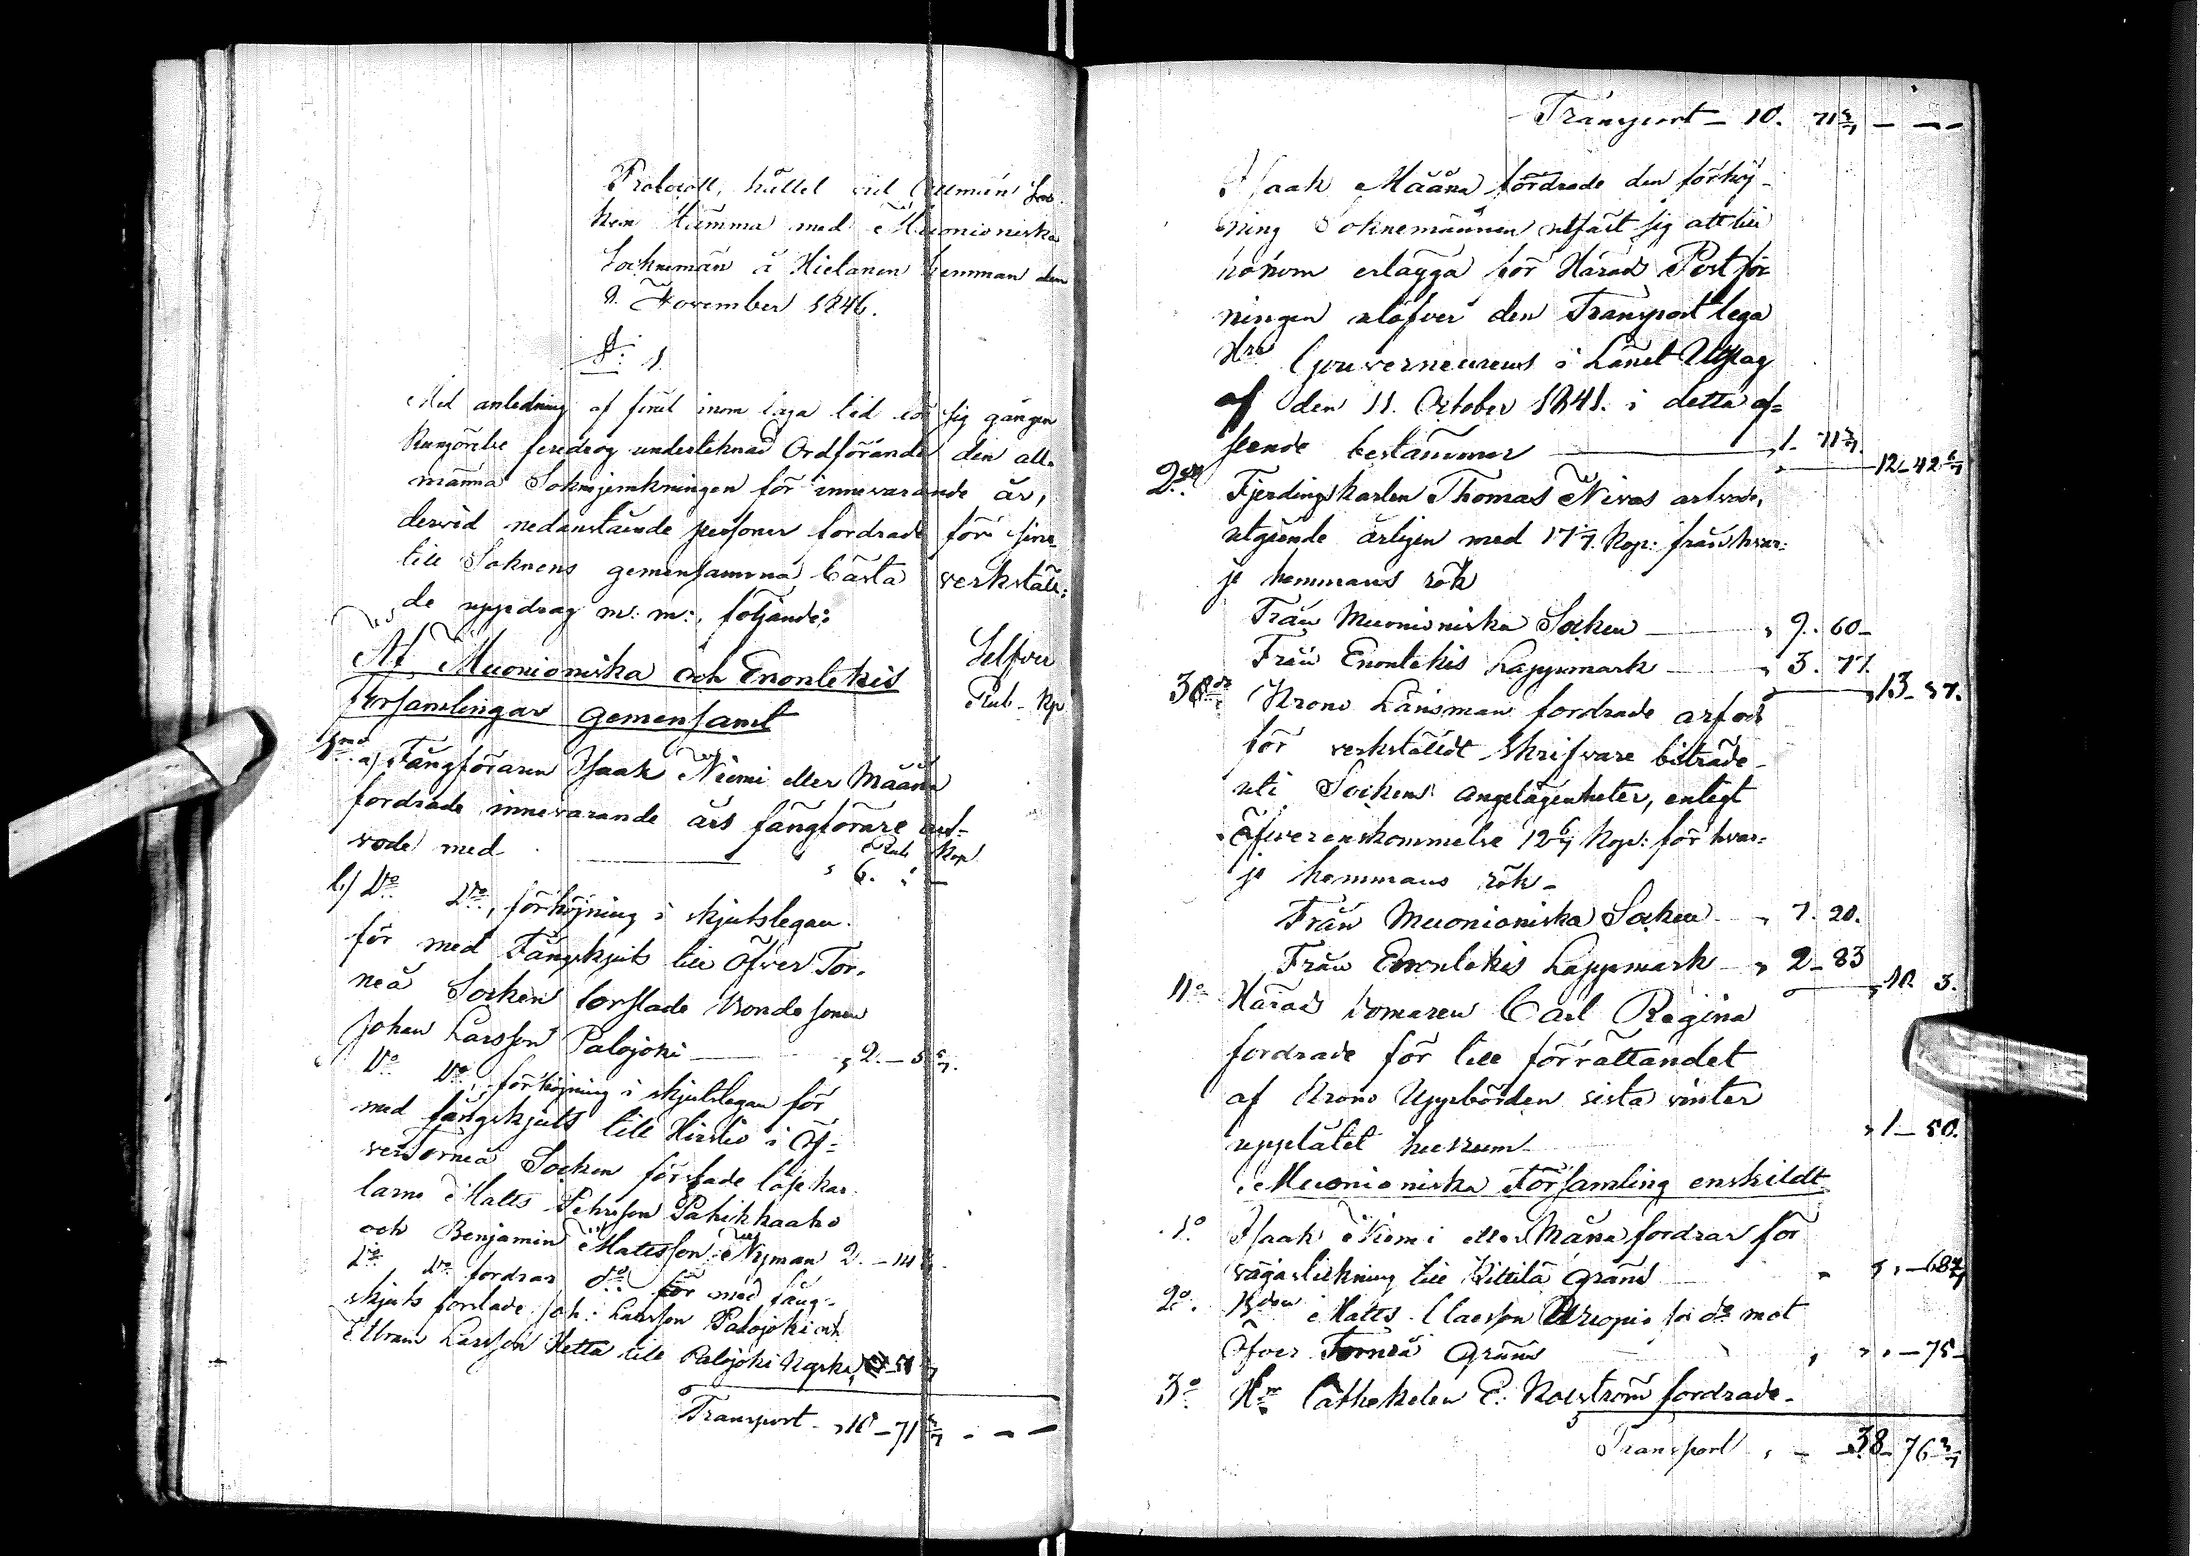 Protocoll, hållet vid Allmän Soc-
ken Stämma med Muonioniska
Socknemän å Hietanen hemman den
9. November 1846.
§. 1.
Med anledning af förut inom laga tid för sig gången
Kungörelse föredrog undertecknad Ordförande den all-
männa Soknejemkningen för innevarande år,
dervid nedanstående personer fordrade för sine
till Soknens gemensamma bästa verkstäl-
de uppdrag m: m:, följande:
Af Muonioniska och Enontekis
Församlingar gemensamt
Silfver
Rub. Kp
1mo a) Fångföraren Isaak Niemi eller Määnä
fordrade innevarande års fångförare arf-
vode med
Rub Kop
" 6. " —
b) Do Do, förhöjning i skjutslegan
för med Fångskjuts till Öfver Tor-
neå Socken forslade Bondesonen
Johan Larsson Palojoki — " 2. — 5 5/7.
Do Do, förhöjning i skjutslegan för
med fångskjuts till Hirstiö i Öf-
verTorneå Socken förslade löskar-
larne Matts Pehrsson Pahikkaaho
och Benjamin Mattsson Nyman 2. — 14
Do Do fordrar do för med fång-
skjuts forslade Joh: Larsson Palojoki och
Abram Larsson Hetta till Palojoki
Transport " 10 — 71 3/7 - - -
Transport — 10. 71 3/7 — — —
Isaak Määnä fordrade den förhöj-
ning Soknemännen utfäst sig att till
honom erlägga för Härads Postför-
ningen utöfver den Transport lega
Hrr Gouverneurens i Länet Utslag
af den 11. October 1841. i detta af-
seende bestämmer — 1. 71 3/7. 12— 42 6/7
2do Fjerdingskarlen Thomas Nivas arfvode,
utgående årligen med 17 1/7. Kop: från hvar-
je hemmans rök
Från Muonioniska Socken — " 9. 60—
Från Enontekis Lappmark — " 3. 77.
" 13— 37.
3o Krono Länsman fordrade arfvode
för verkstäldt skrifvare biträde
uti Sockens angelägenheter, enligt
öfverenskommelse 12 6/7 Kop: för hvar-
je hemmans rök—
Från Muonioniska Socken — " 7. 20.
Från Enontekis Lappmark — " 2— 83
" 10. 3.
4o Härads Domaren Carl Regina
fordrade för till förrättandet
af Krono Uppbörden sista vinter
upplåtit husrum— " 1— 50.
Muonioniska Församling enskildt
1o Isaak Niemi eller Määnä fordrar för
vägaslickning till Kittilä Gräns — " " — 68 4/7
2o. Bden Matts Claesson Utriopio för do mot
Öfver Torneå Gräns — " " — 75—
3o Hr Catheketen E. Kolström fordrade—
Transport " — 38— 76 3/7